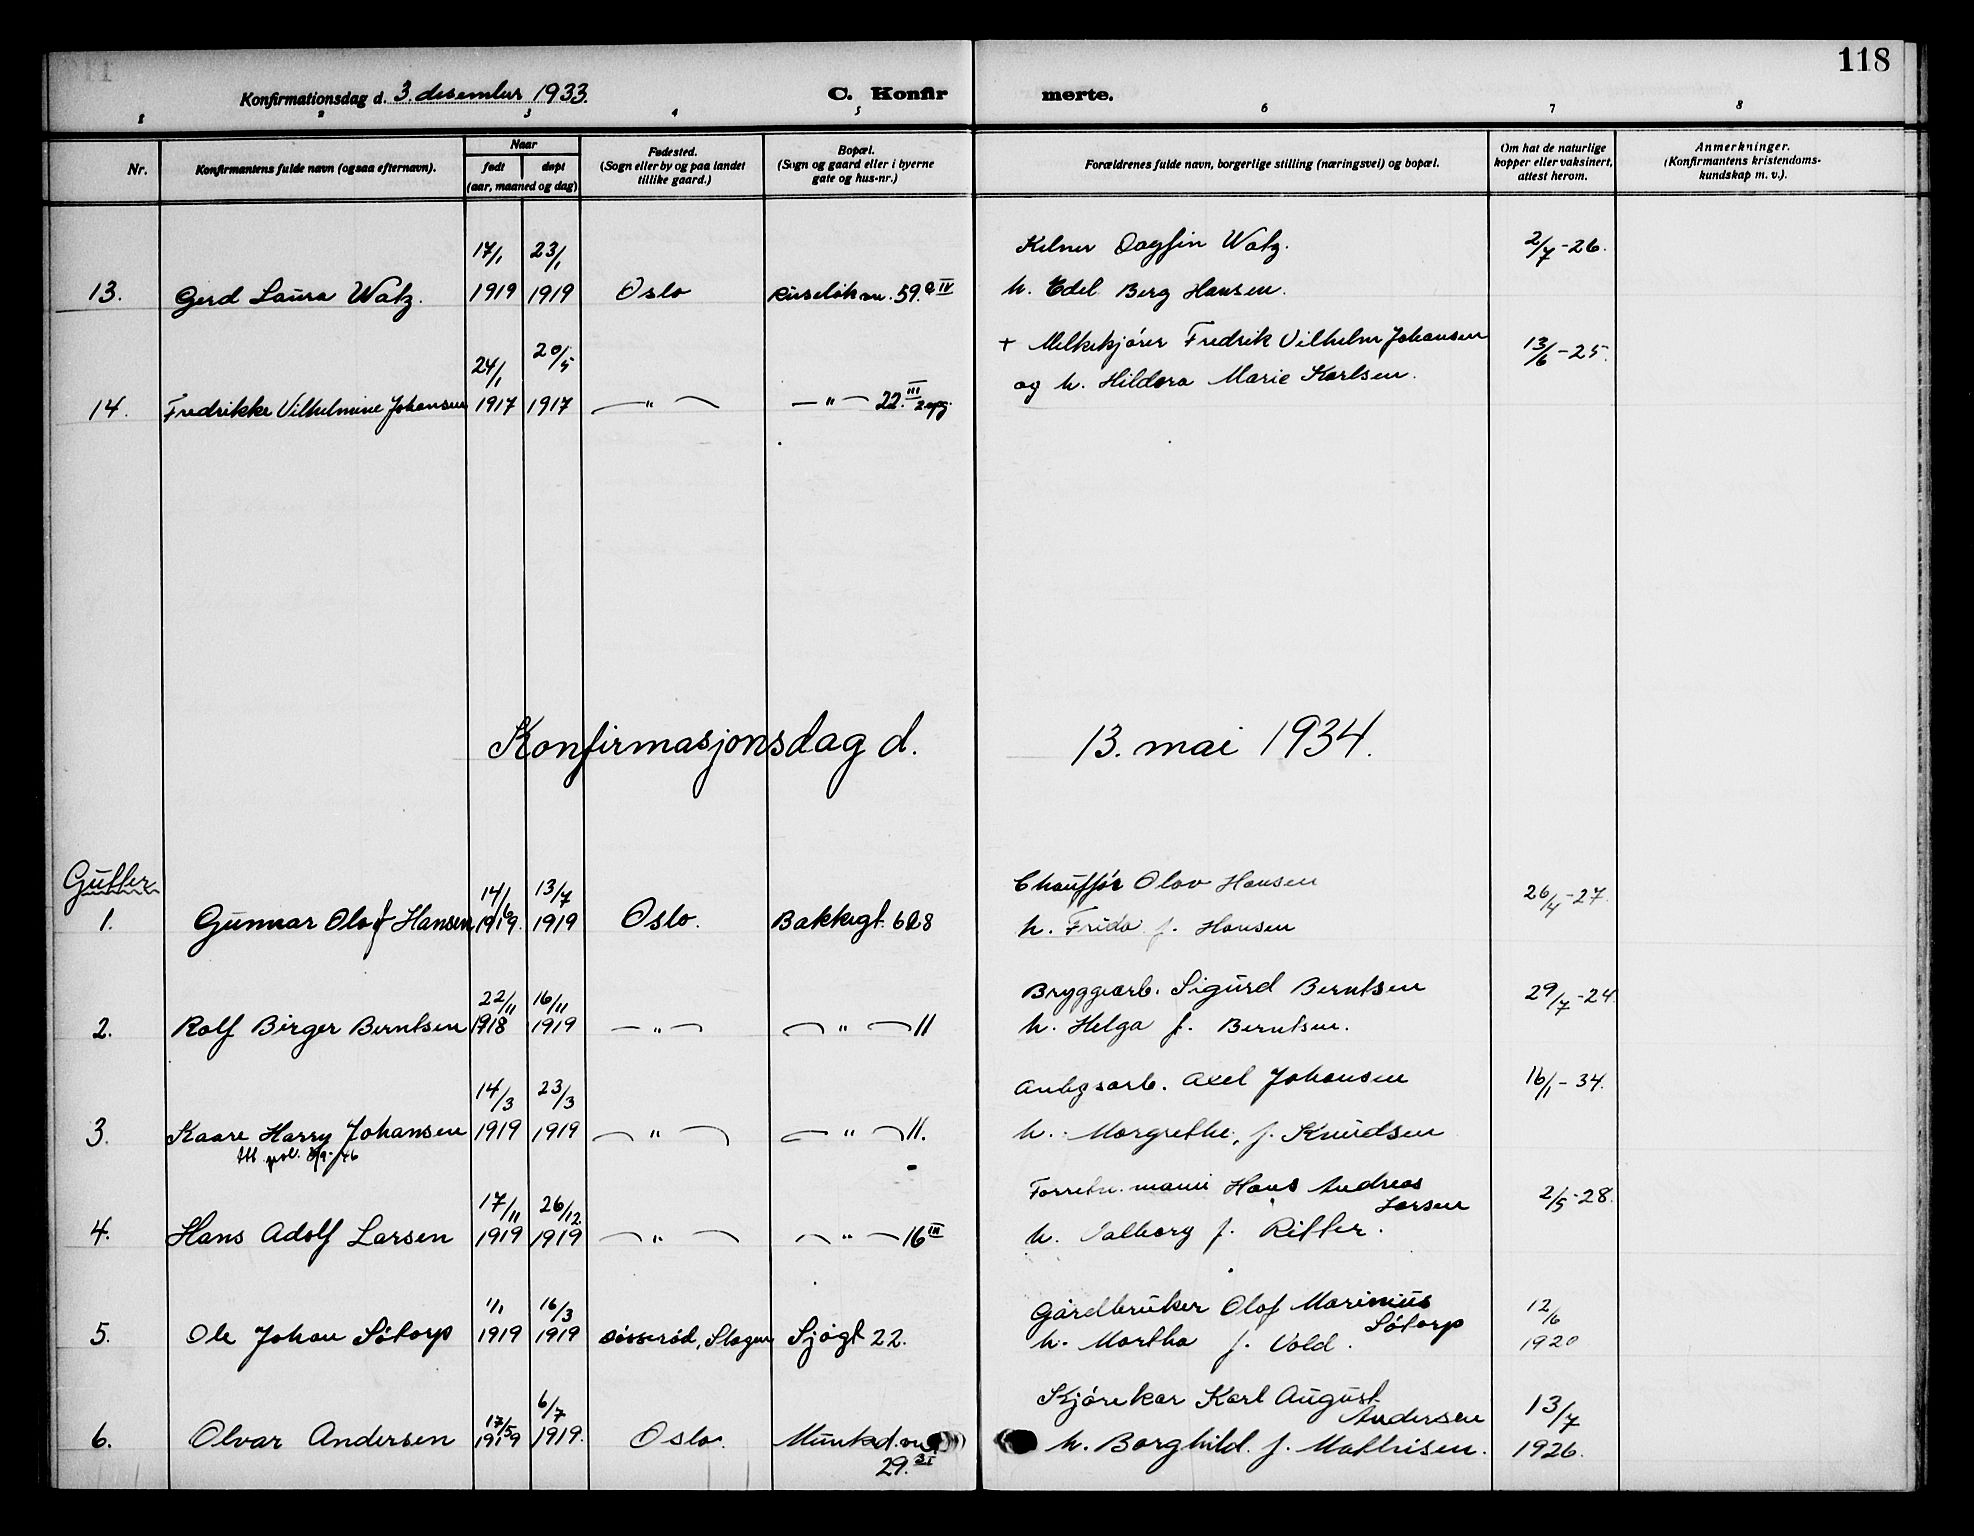 118
Konfirmationsdag d. 3. desember 1933.
C. Konfirmerte.
1 2 3 4 5 6 7 8
Nr.
Konfirmantens fulde navn (ogsaa efternavn).
Naar
født
døpt
(aar, maaned og dag)
Fødested.
(Sogn eller by og paa landet
tillike gaard.)
Bopæl.
(Sogn og gaard eller i byerne
gate og hus-nr.)
Forældrenes fulde navn, borgerlige stilling (næringsvei) og bopæl.
Om hat de naturlige
kopper eller vaksinert,
attest herom.
Anmerkninger.
(Konfirmantens kristendoms-
kundskap m. v.).
17/1 23/1 Kelner Dagfin Watz. 2/7-26.
13. Gerd Laura Watz. 1919 1919 Oslo 59. IV h. Edel Berg Hansen.
24/1 20/5 + Melkekjører Fredrik Vilhelm Johansen 13/6-25.
og h. Marie Karlsen.
14. Fredrikke Vilhelmine Johansen 1917 1917 — " — — " — 22. III 2 opg.
Konfirmasjonsdag d. 13. mai 1934.
Gutter
14/6 13/7 Chauffør Olav Hansen 26/4-27.
1. Gunnar Olaf Hansen 1919. 1919 Oslo. Bakkegt. h. Frida f. Hansen
22/11 16/11 Bryggearb. Sigurd Berntsen 29/7-24.
2. Rolf Birger Berntsen 1918 1919 — " — — " — 11 h. Helga f. Berntsen.
14/3 23/3 Anlegsarb. Axel Johansen 16/1-34.
3. Kaare Harry Johansen 1919 1919 — " — — " — 11. h. Margrethe, f. Knudsen
17/11 26/12 Forretn. mann Hans Andreas 2/5-28.
Larsen
4. Hans Adolf Larsen 1919 1919 — " — — " — 16 III h. Valborg f. Ritter.
1/1 16/3 Gårdbruker Olof Marinius 12/6
Søtorp
5. Ole Johan Søtorp 1919 1919 Slagen Sjøgt 22. h. Martha f. Vold. 1920
17/5 6/7 Kjørekar Karl August 13/7
Andersen
6. Olvar Andersen 1919 1919. Oslo. h. Borghild f. Mathisen. 1926.
29.